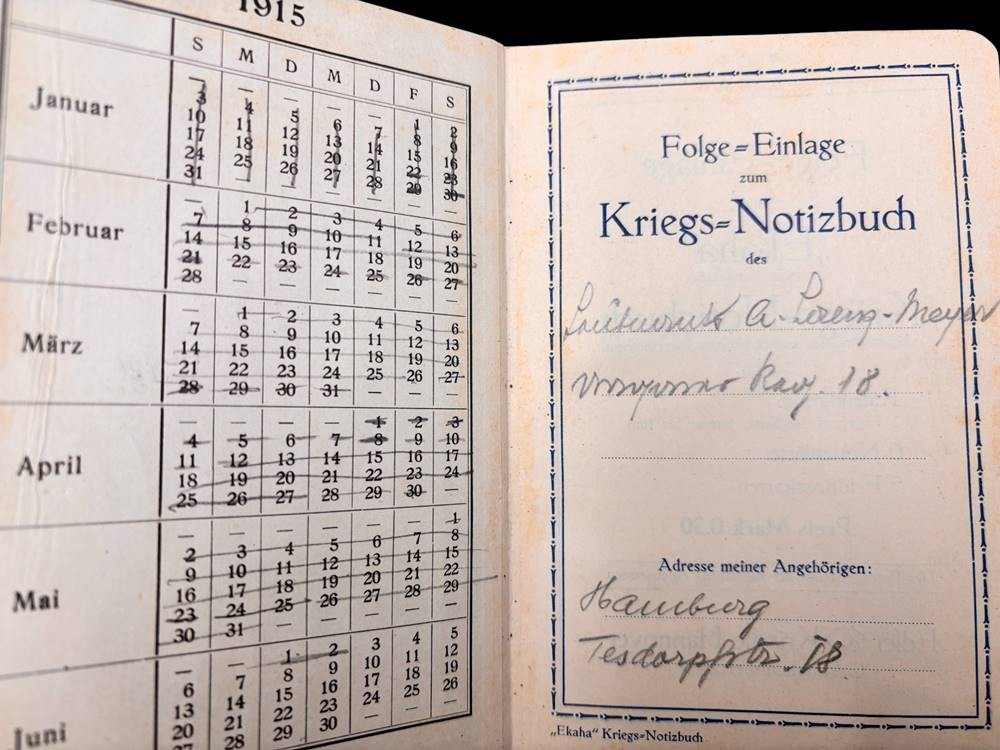 1915
S M D M D F S
Januar
— — — — — 1 2
3 4 5 6 7 8 9
10 11 12 13 14 15 16
17 18 19 20 21 22 23
24 25 26 27 28 29 30
31 — — — — — —
Februar
— 1 2 3 4 5 6
7 8 9 10 11 12 13
14 15 16 17 18 19 20
21 22 23 24 25 26 27
28 — — — — — —
März
— 1 2 3 4 5 6
7 8 9 10 11 12 13
14 15 16 17 18 19 20
21 22 23 24 25 26 27
28 29 30 31 — — —
April
— — — — 1 2 3
4 5 6 7 8 9 10
11 12 13 14 15 16 17
18 19 20 21 22 23 24
25 26 27 28 29 30 —
Mai
— — — — — — 1
2 3 4 5 6 7 8
9 10 11 12 13 14 15
16 17 18 19 20 21 22
23 24 25 26 27 28 29
30 31 — — — — —
Juni
— — 1 2 3 4 5
6 7 8 9 10 11 12
13 14 15 16 17 18 19
20 21 22 23 24 25 26
27 28 29 30 — — —
Folge=Einlage
zum
Kriegs=Notizbuch
des
A. Lorenz-Meyer
18.
Adresse meiner Angehörigen:
Hamburg
Tesdorpfstr. 18
„Ekaha“ Kriegs=Notizbuch